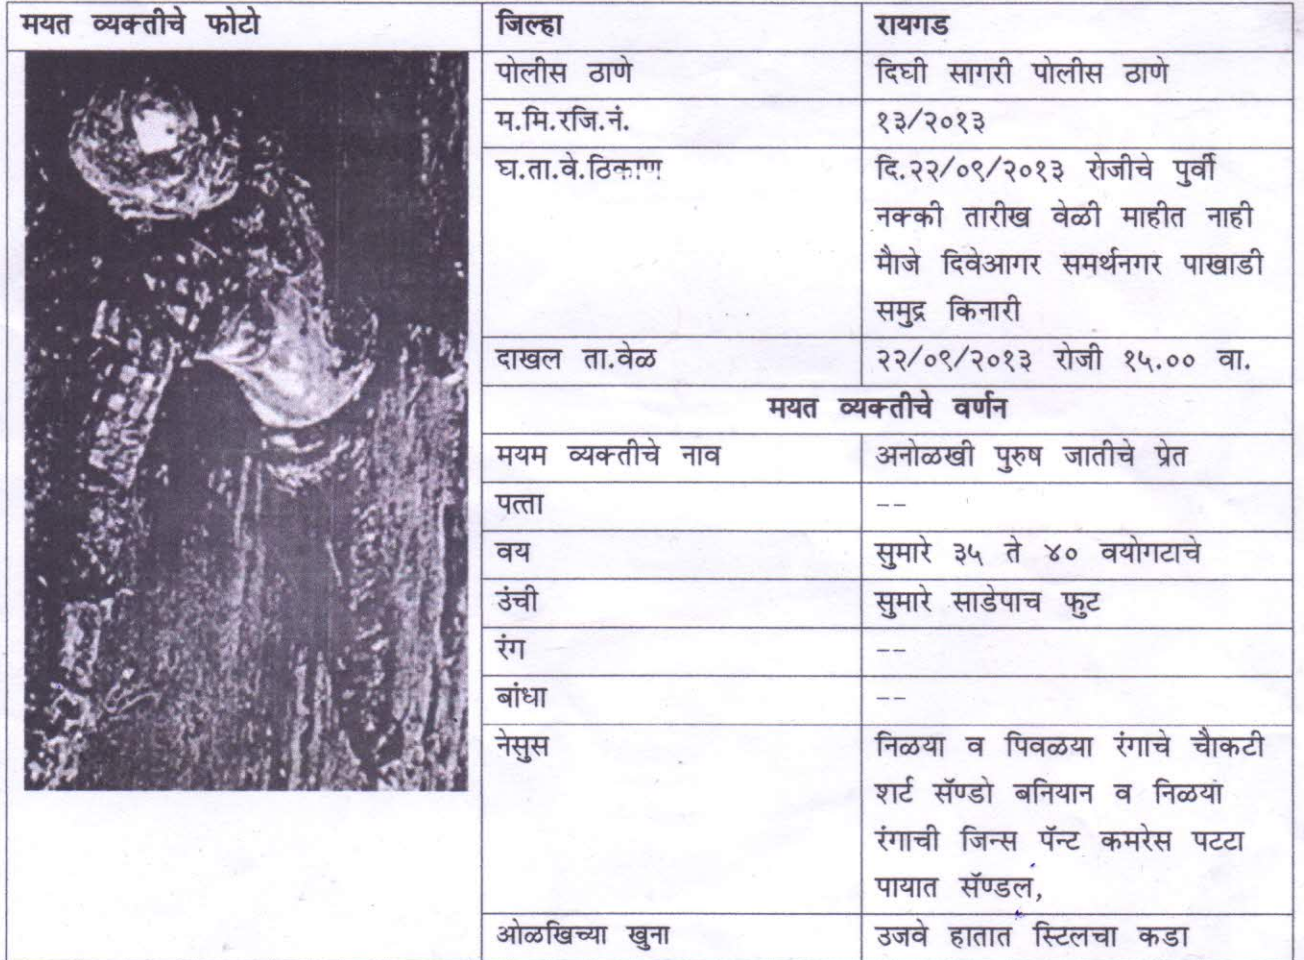 मयत व्यक्तीचे फोटो जिल्हा रायगड
पोलीस ठाणे दिघी सागरी पोलीस ठाणे
म.मि.रजि.नं. १३/२०१३
घ.ता.वे.ठिकाण दि.२२/०९/२०१३ रोजीचे पुर्वी
नक्की तारीख वेळी माहीत नाही
मौजे दिवेआगर समर्थनगर पाखाडी
समुद्र किनारी
दाखल ता.वेळ २२/०९/२०१३ रोजी १५.०० वा.
मयत व्यक्तीचे वर्णन
मयम व्यक्तीचे नाव अनोळखी पुरुष जातीचे प्रेत
पत्ता --
वय सुमारे ३५ ते ४० वयोगटाचे
उंची सुमारे साडेपाच फुट
रंग --
बांधा --
नेसुस निळया व पिवळया रंगाचे चौकटी
शर्ट सॅण्डो बनियान व निळया
रंगाची जिन्स पॅन्ट कमरेस पटटा
पायात सॅण्डल,
ओळखिच्या खुना उजवे हातात स्टिलचा कडा